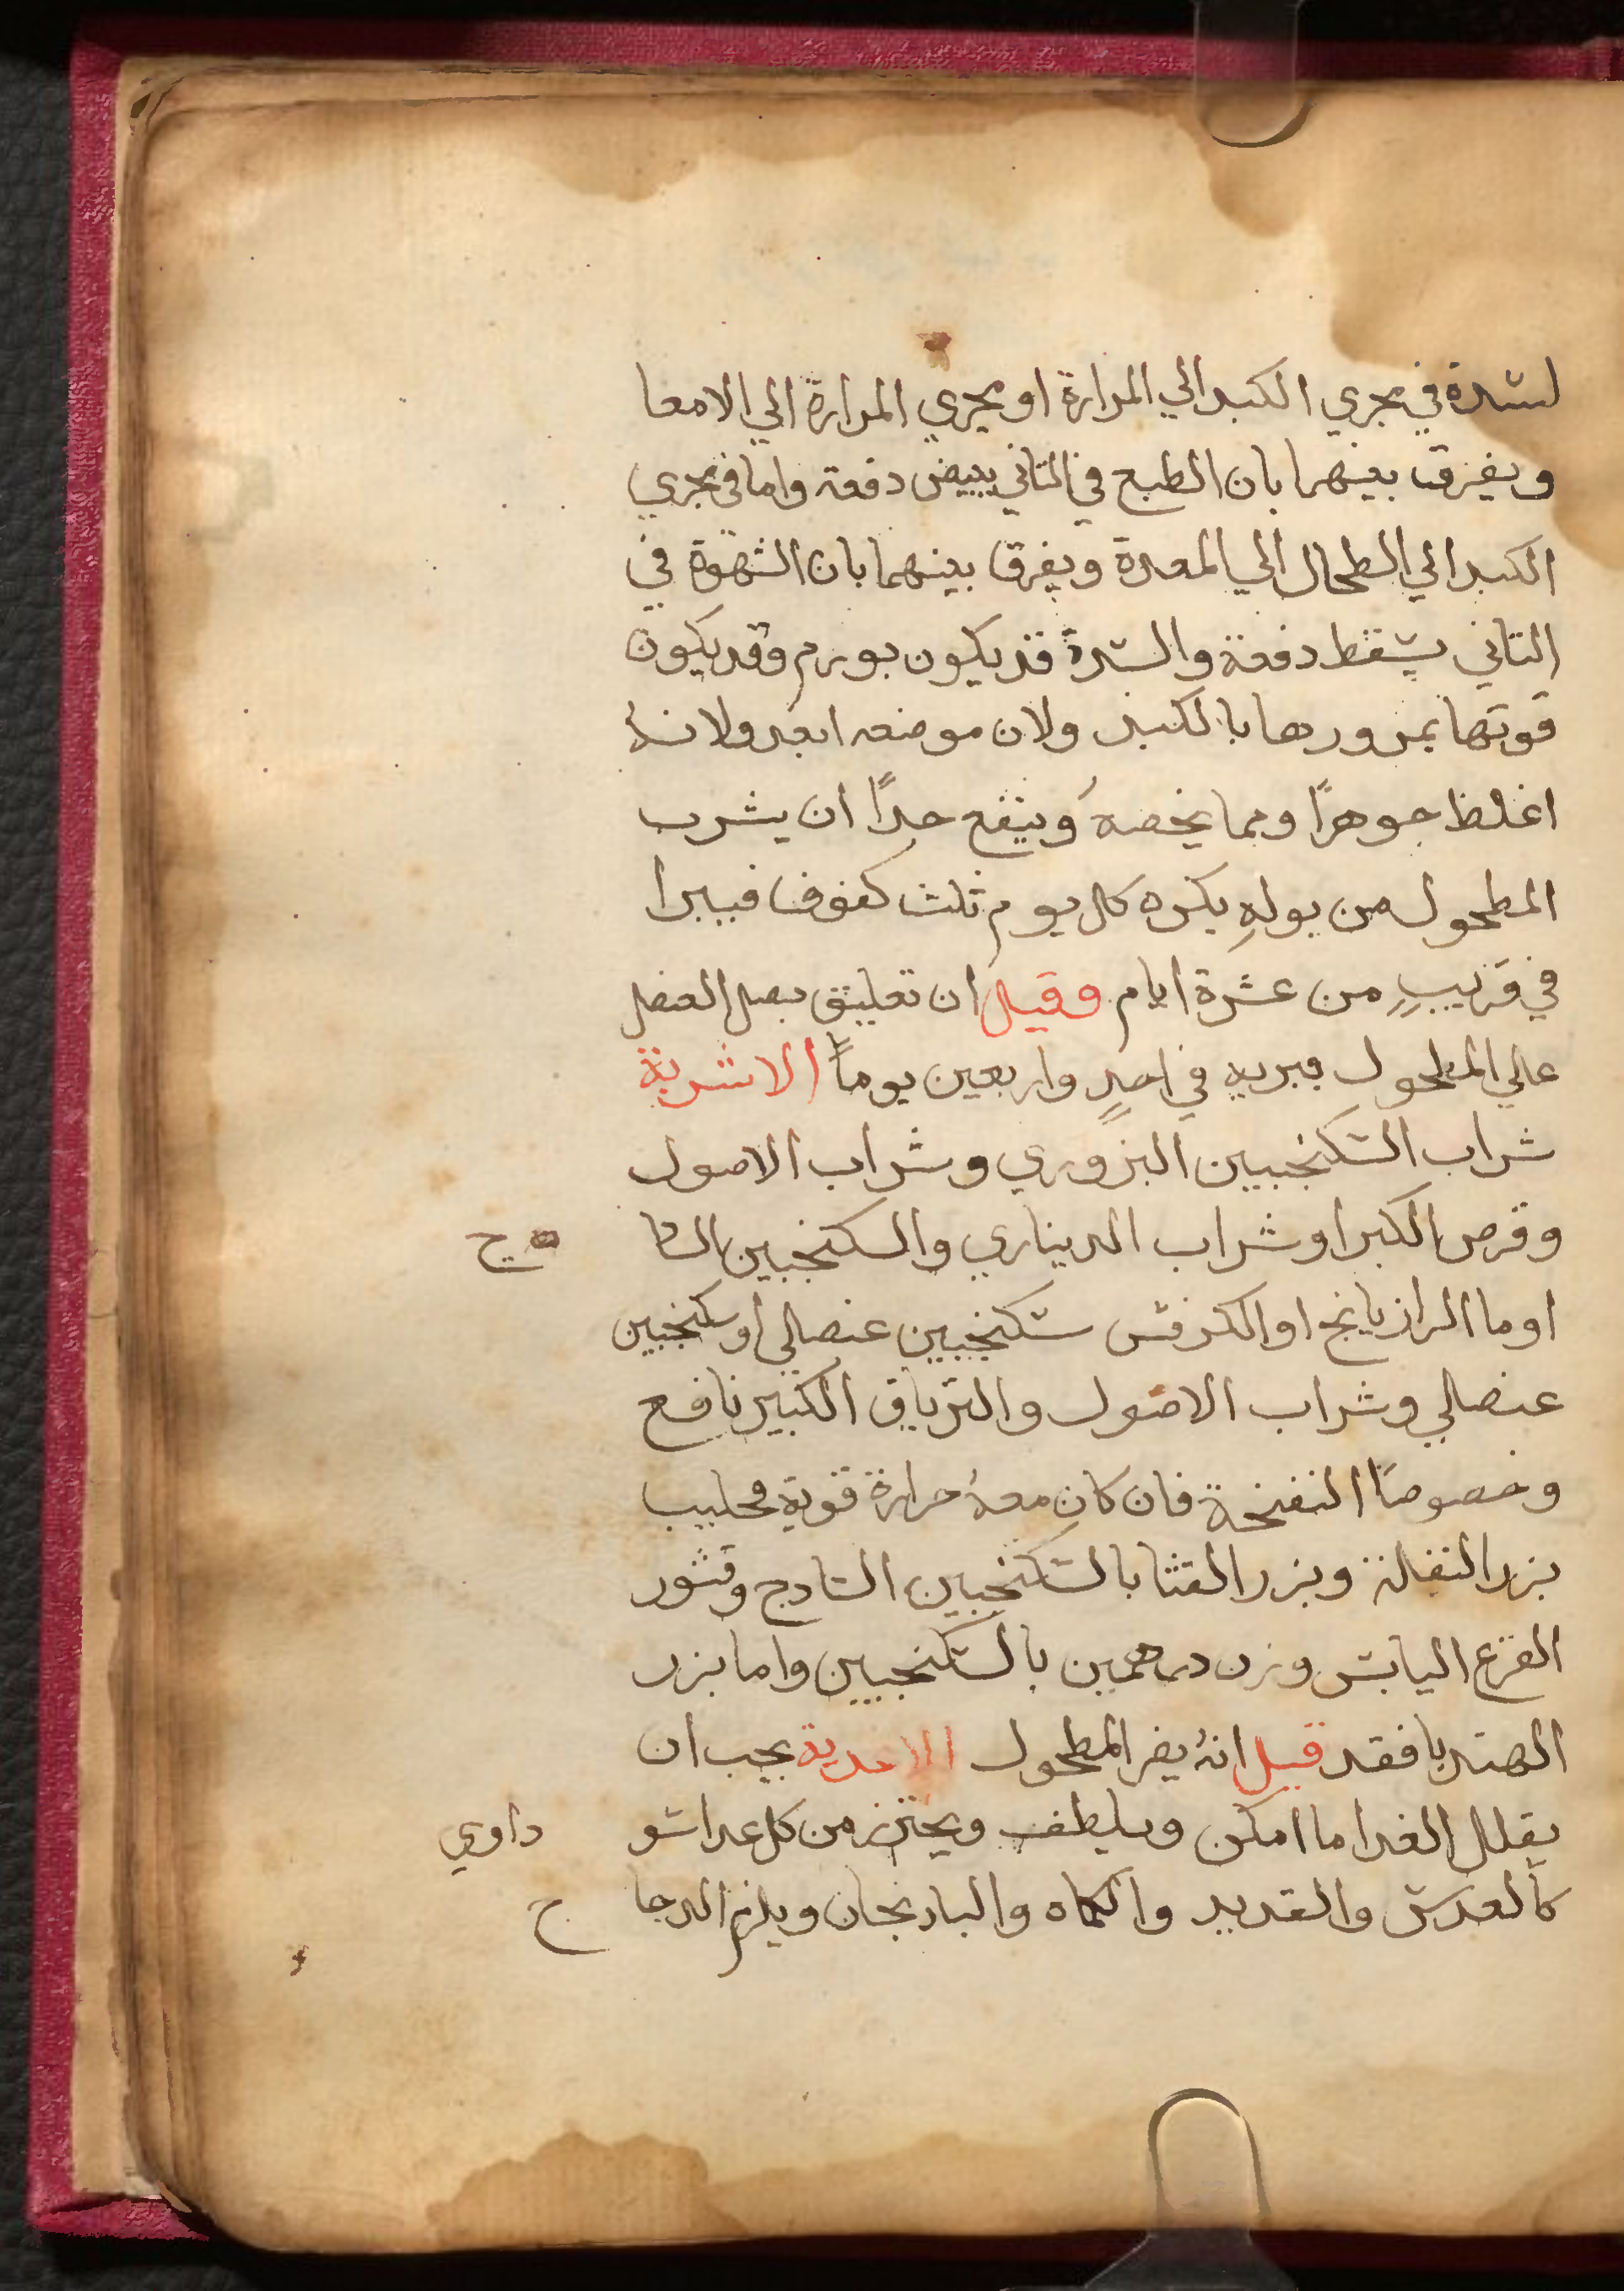 لسدة في مجري الكبد الي المرارة او مجري المرارة الي الامعا
ويفرق بينهما بان الطبع في الثاني يبيض دفعة واما في مجري
الكبد الي الطحال الي المعدة ويفرق بينهما بان الشهوة في
الثاني يسقط دفعة والسدة قد يكون بورم وقد يكون
قوتها بمرورها بالكبد ولان موضعه ابعد ولانهُ
اغلظ جوهرًا ومما يخصهُ وينفع جدًا ان يشرب
المطحول من بولهِ بكره كل يوم ثلث كفوف فيبرا
في قريبٍ من عشرة ايام وقيل ان تعليق بصل العنصل
علي المطحول يبريه في احدٍ واربعين يومًا الاشربة
شراب السكنجبين البزوري وشراب الاصول
وقرص الكبر او شراب الديناري والسكنجبين السا ذج
او ما الرازيانج او الكرفس سكنجبين عنصلي او سكنجبين
عنصلي وشراب الاصول والترياق الكبير نافع
وخصوصًا النفخة فان كان معهُ حرارة قوية فحليب
بزر البقلة وبزر القثا بالسكنجبين السادج وقشور
القرع اليابس وزن درهمين بالسكنجبين واما بزر
الهندبا فقد قيل انهُ يضر المطحول الاغدية يجب ان
يقلل الغدا ما امكن ويلطف ويحترز من كل غدا سو داوي
كالعدس والقديد والكماه والبادنجان ويلزم الدجا ج